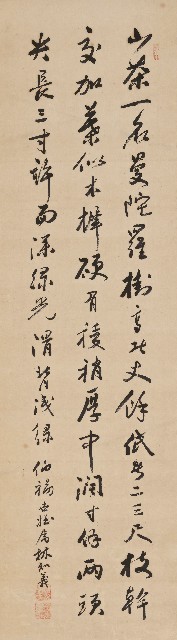 山茶一名曼陀羅樹高者丈餘低者二三尺枝幹
交加葉似木樨硬有稜稍厚中闊寸餘兩頭
尖長三寸許面深綠光滑背淺綠